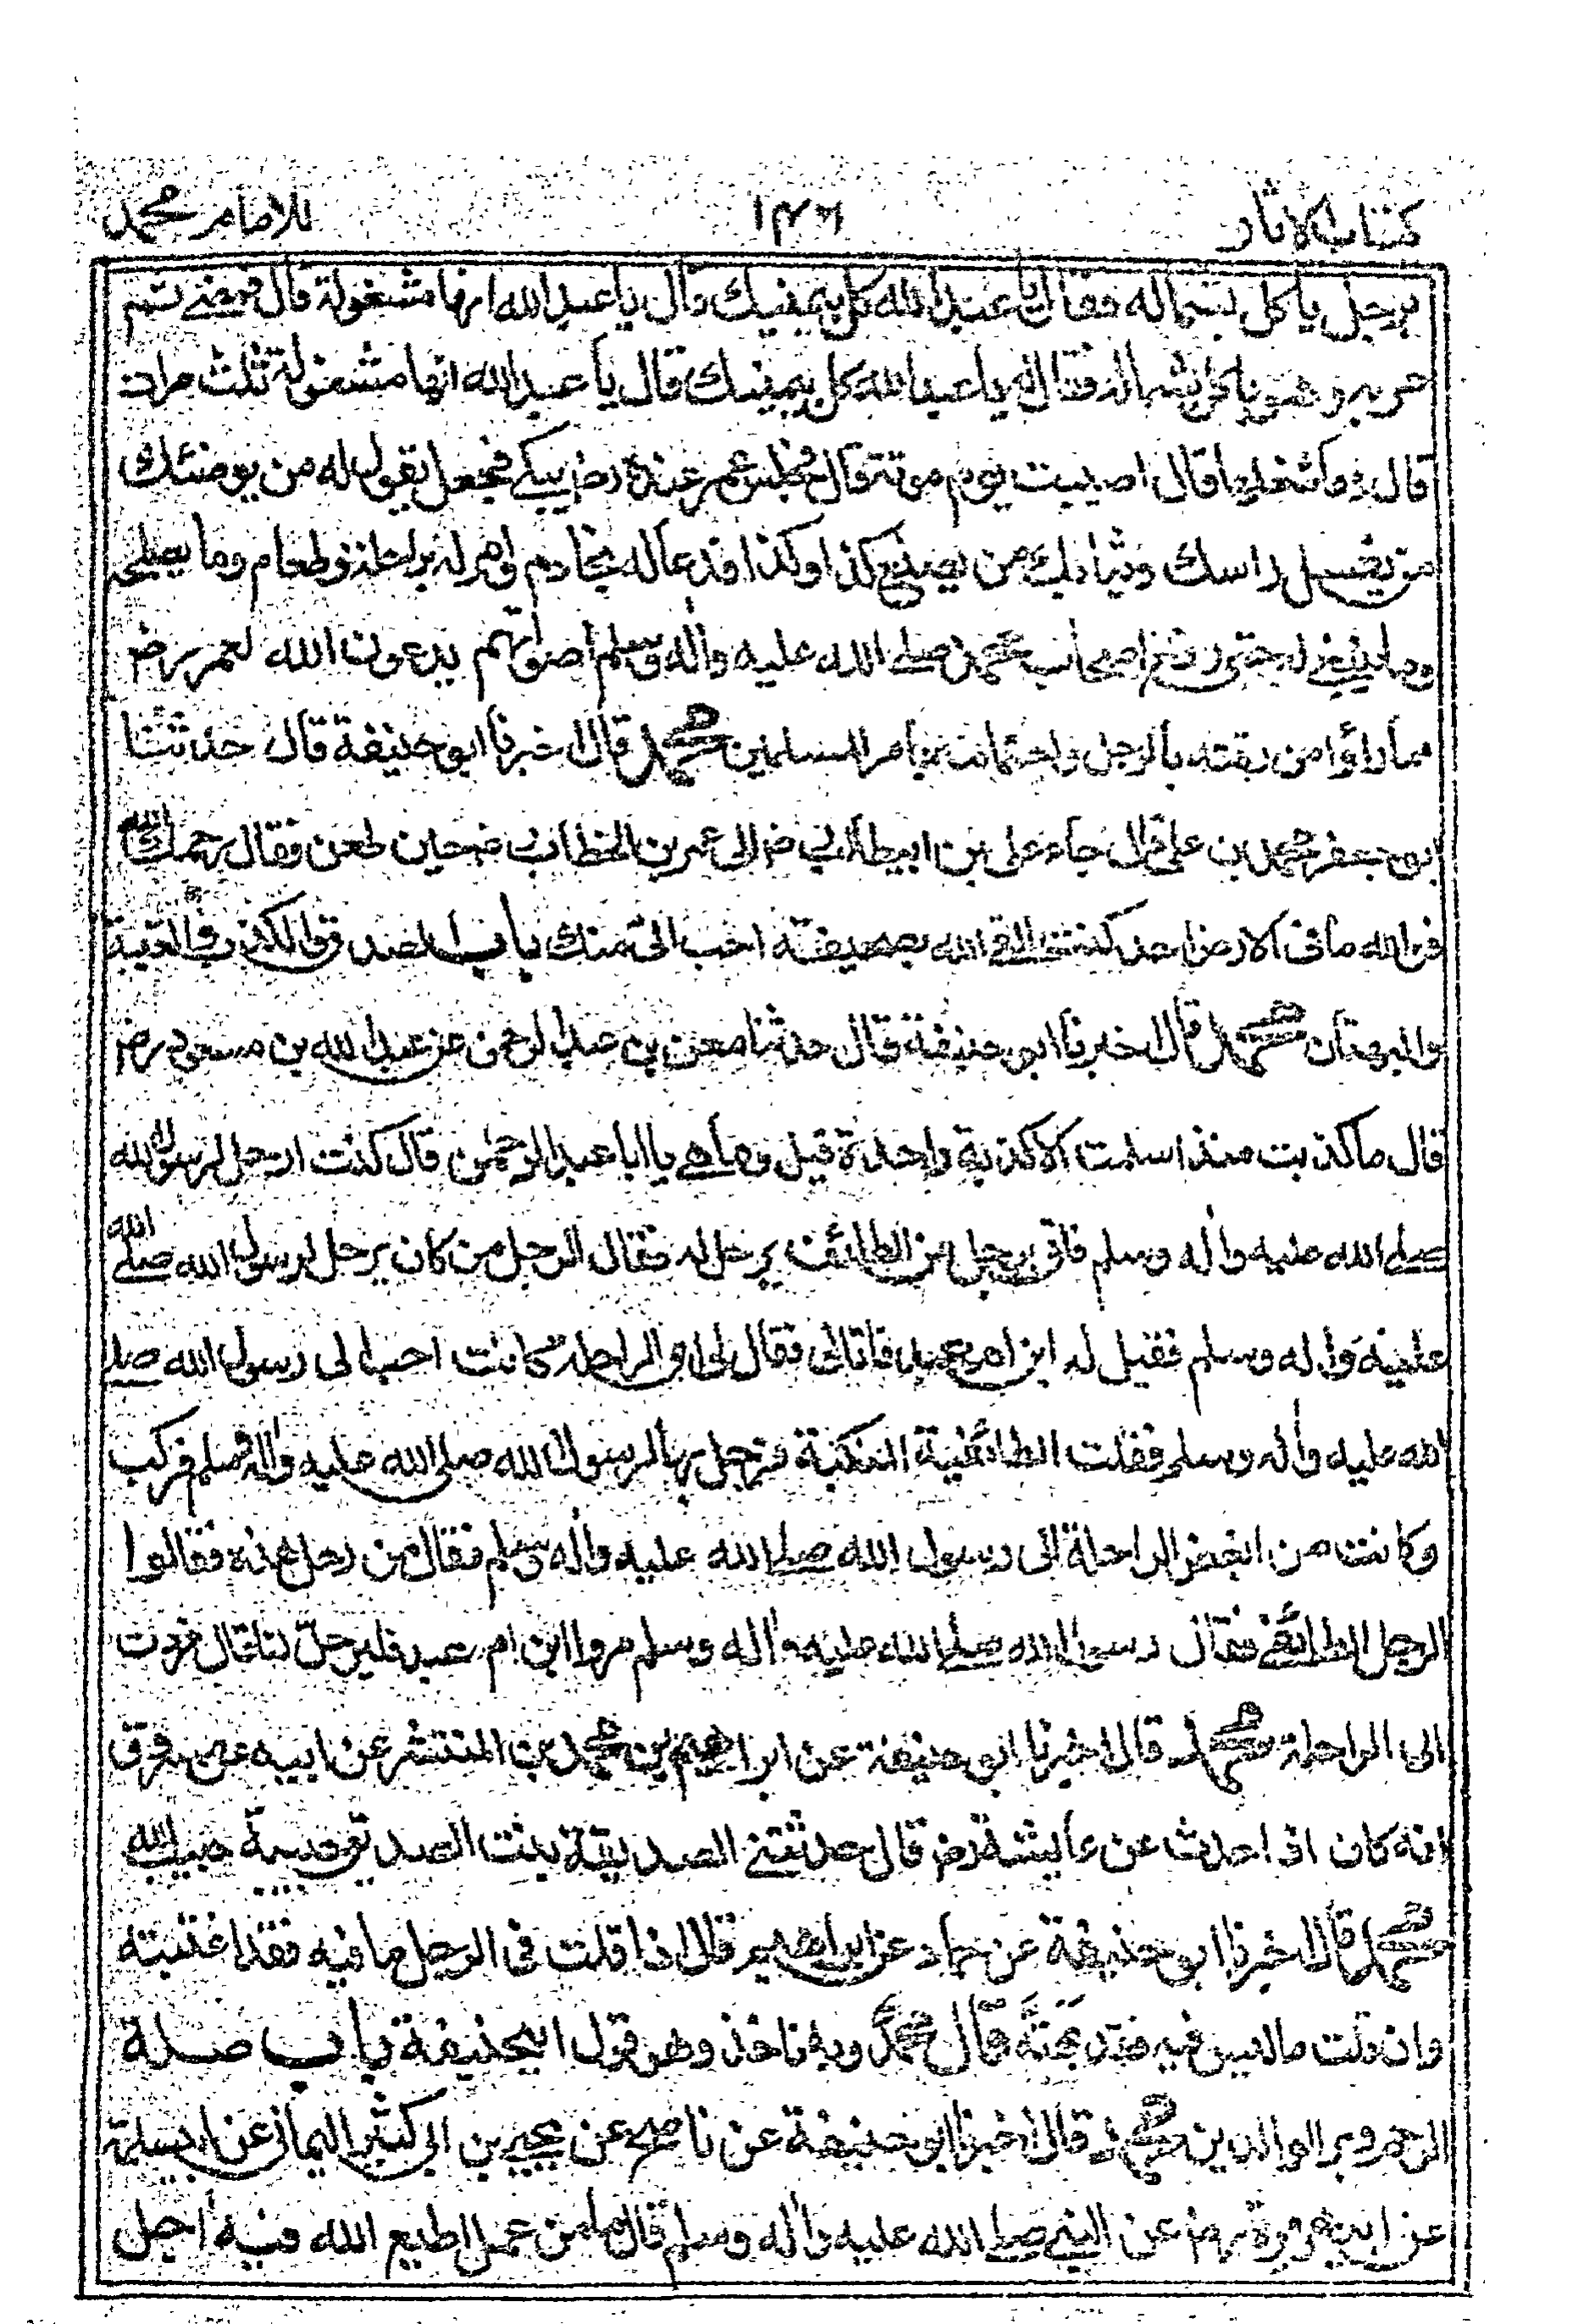 كتاب الاثار ١٤٦ للامام محمد
برجل ياكل بشماله فقال يا عبد الله كل بيمينك قال يا عبد الله انها مشغولة قال فمضے ثم
مر به وهو ياكل بشماله فقال يا عبد الله كل بيمينك قال يا عبد الله انها مشغولة ثلث مرات
قال وما شغلها قال اصيبت يوم موتة قال فجلس عمر عنده رض يبكے فجعل يقول له من يوضئك
من يغسل راسك وثيابك من يصنع كذا وكذا فدعا له بخادم وامر له براحلة وطعام وما يصلحه
وما ينبغے له حتى رفع اصحاب محمد صلے الله عليه واٰله وسلم اصواتهم يدعون الله لعمر رض
مما راؤا من رقته بالرجل واهتمامه بامر المسلمين محمد قال اخبرنا ابو حنيفة قال حدثنا
ابو جعفر محمد بن على قال جاء على بن ابيطالب رض الى عمر بن الخطاب رض حين طعن فقال رحمك الله
فوالله ما فى الارض احد كنت القے الله بصحيفته احب الىّ منك باب الصدق والكذب والغيبة
والبهتان محمد قال اخبرنا ابو حنيفة قال حدثنا معن بن عبد الرحمن عن عبد الله بن مسعود رض
قال ما كذبت منذ اسلمت الا كذبة واحدة قيل وما هے يا ابا عبد الرحمٰن قال كنت ارحل لرسول الله
صلے الله عليه واٰله وسلم فاتى برجل من الطائف يرحل له فقال الرجل من كان يرحل لرسول الله صلے الله
عليه واٰله وسلم فقيل له ابن ام عبد فاتانى فقال لى اى الراحلة كانت احب الى رسول الله صلے
الله عليه واٰله وسلم فقلت الطائفية المنكبة فرحل بها لرسول الله صلى الله عليه واٰله وسلم فركب
وكانت من ابغض الراحلة الى رسول الله صلے الله عليه واٰله وسلم فقال من رحل هذه فقالوا
الرجل الطائفے فقال رسول الله صلے الله عليه واٰله وسلم مروا ابن ام عبد فليرحل لنا قال فردت
الى الراحلة محمد قال اخبرنا ابو حنيفة عن ابراهيم بن محمد بن المنتشر عن ابيه عن مسروق
انه كان اذا حدث عن عايشة رض قال حدثتنے الصديقة بنت الصديق حبيبة حبيب الله
محمد قال اخبرنا ابو حنيفة عن حماد عن ابراهيم قال اذا قلت فى الرجل ما فيه فقد اغتبته
وان قلت ما ليس فيه فقد بهتّه قال محمد وبه ناخذ وهو قول ابيحنيفة باب صلة
الرحم وبر الوالدين محمد قال اخبرنا ابو حنيفة عن ناصح عن يحيے بن ابى كثير اليمانى عن ابى سلمة
عن ابى هريرة رض عن النبے صلے الله عليه واٰله وسلم قال ما من عمل اطيع الله فيه اجل